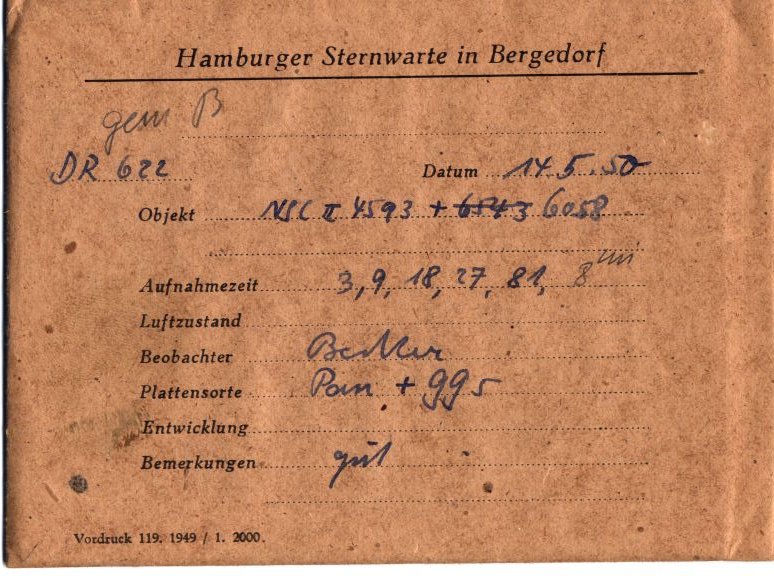 Hamburger Sternwarte in Bergedorf
gem B
DR 622 Datum 14 5.50
Objekt II 4593 + 6543 6058
Aufnahmezeit 3, 9, 18, 27, 81, 8
Luftzustand
Beobachter
Plattensorte Pan + 995
Entwicklung
Bemerkungen gut
Vordruck 119. 1949 / 1. 2000.